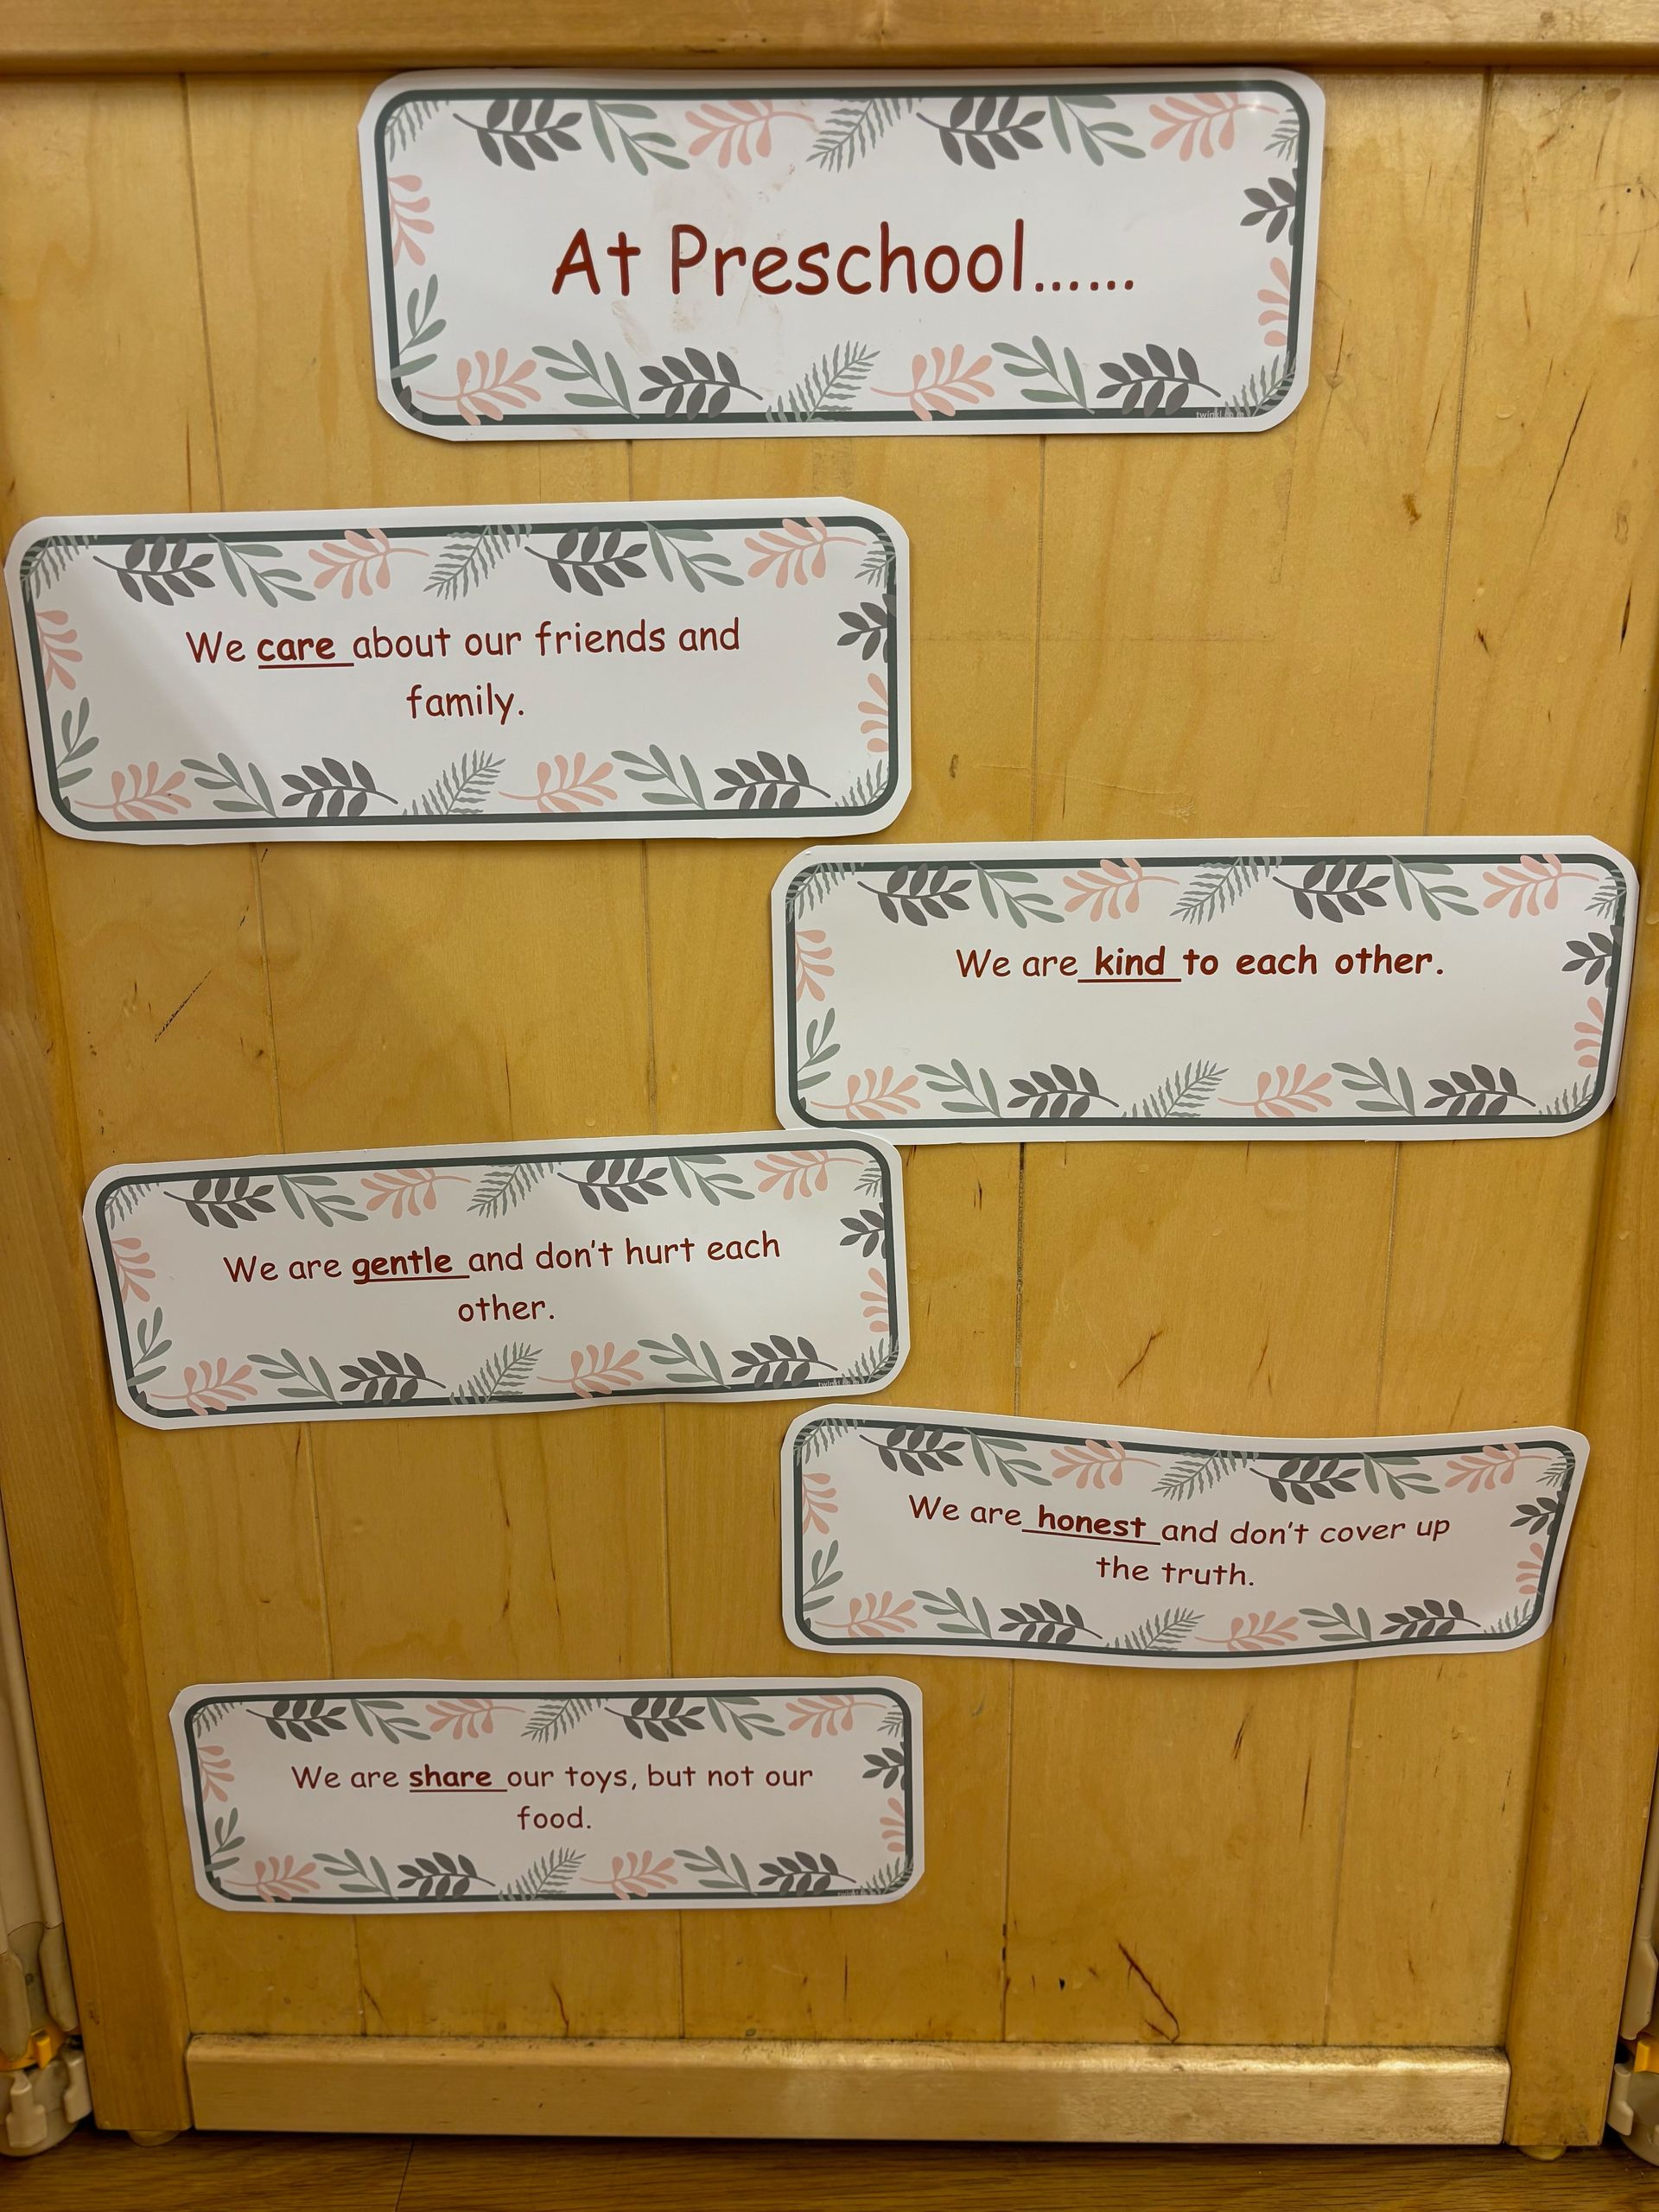 At Preschool......
We care about our friends and
family.
We are kind to each other.
We are gentle and don't hurt each
other.
We are honest and don't cover up
the truth.
We are share our toys, but not our
food.